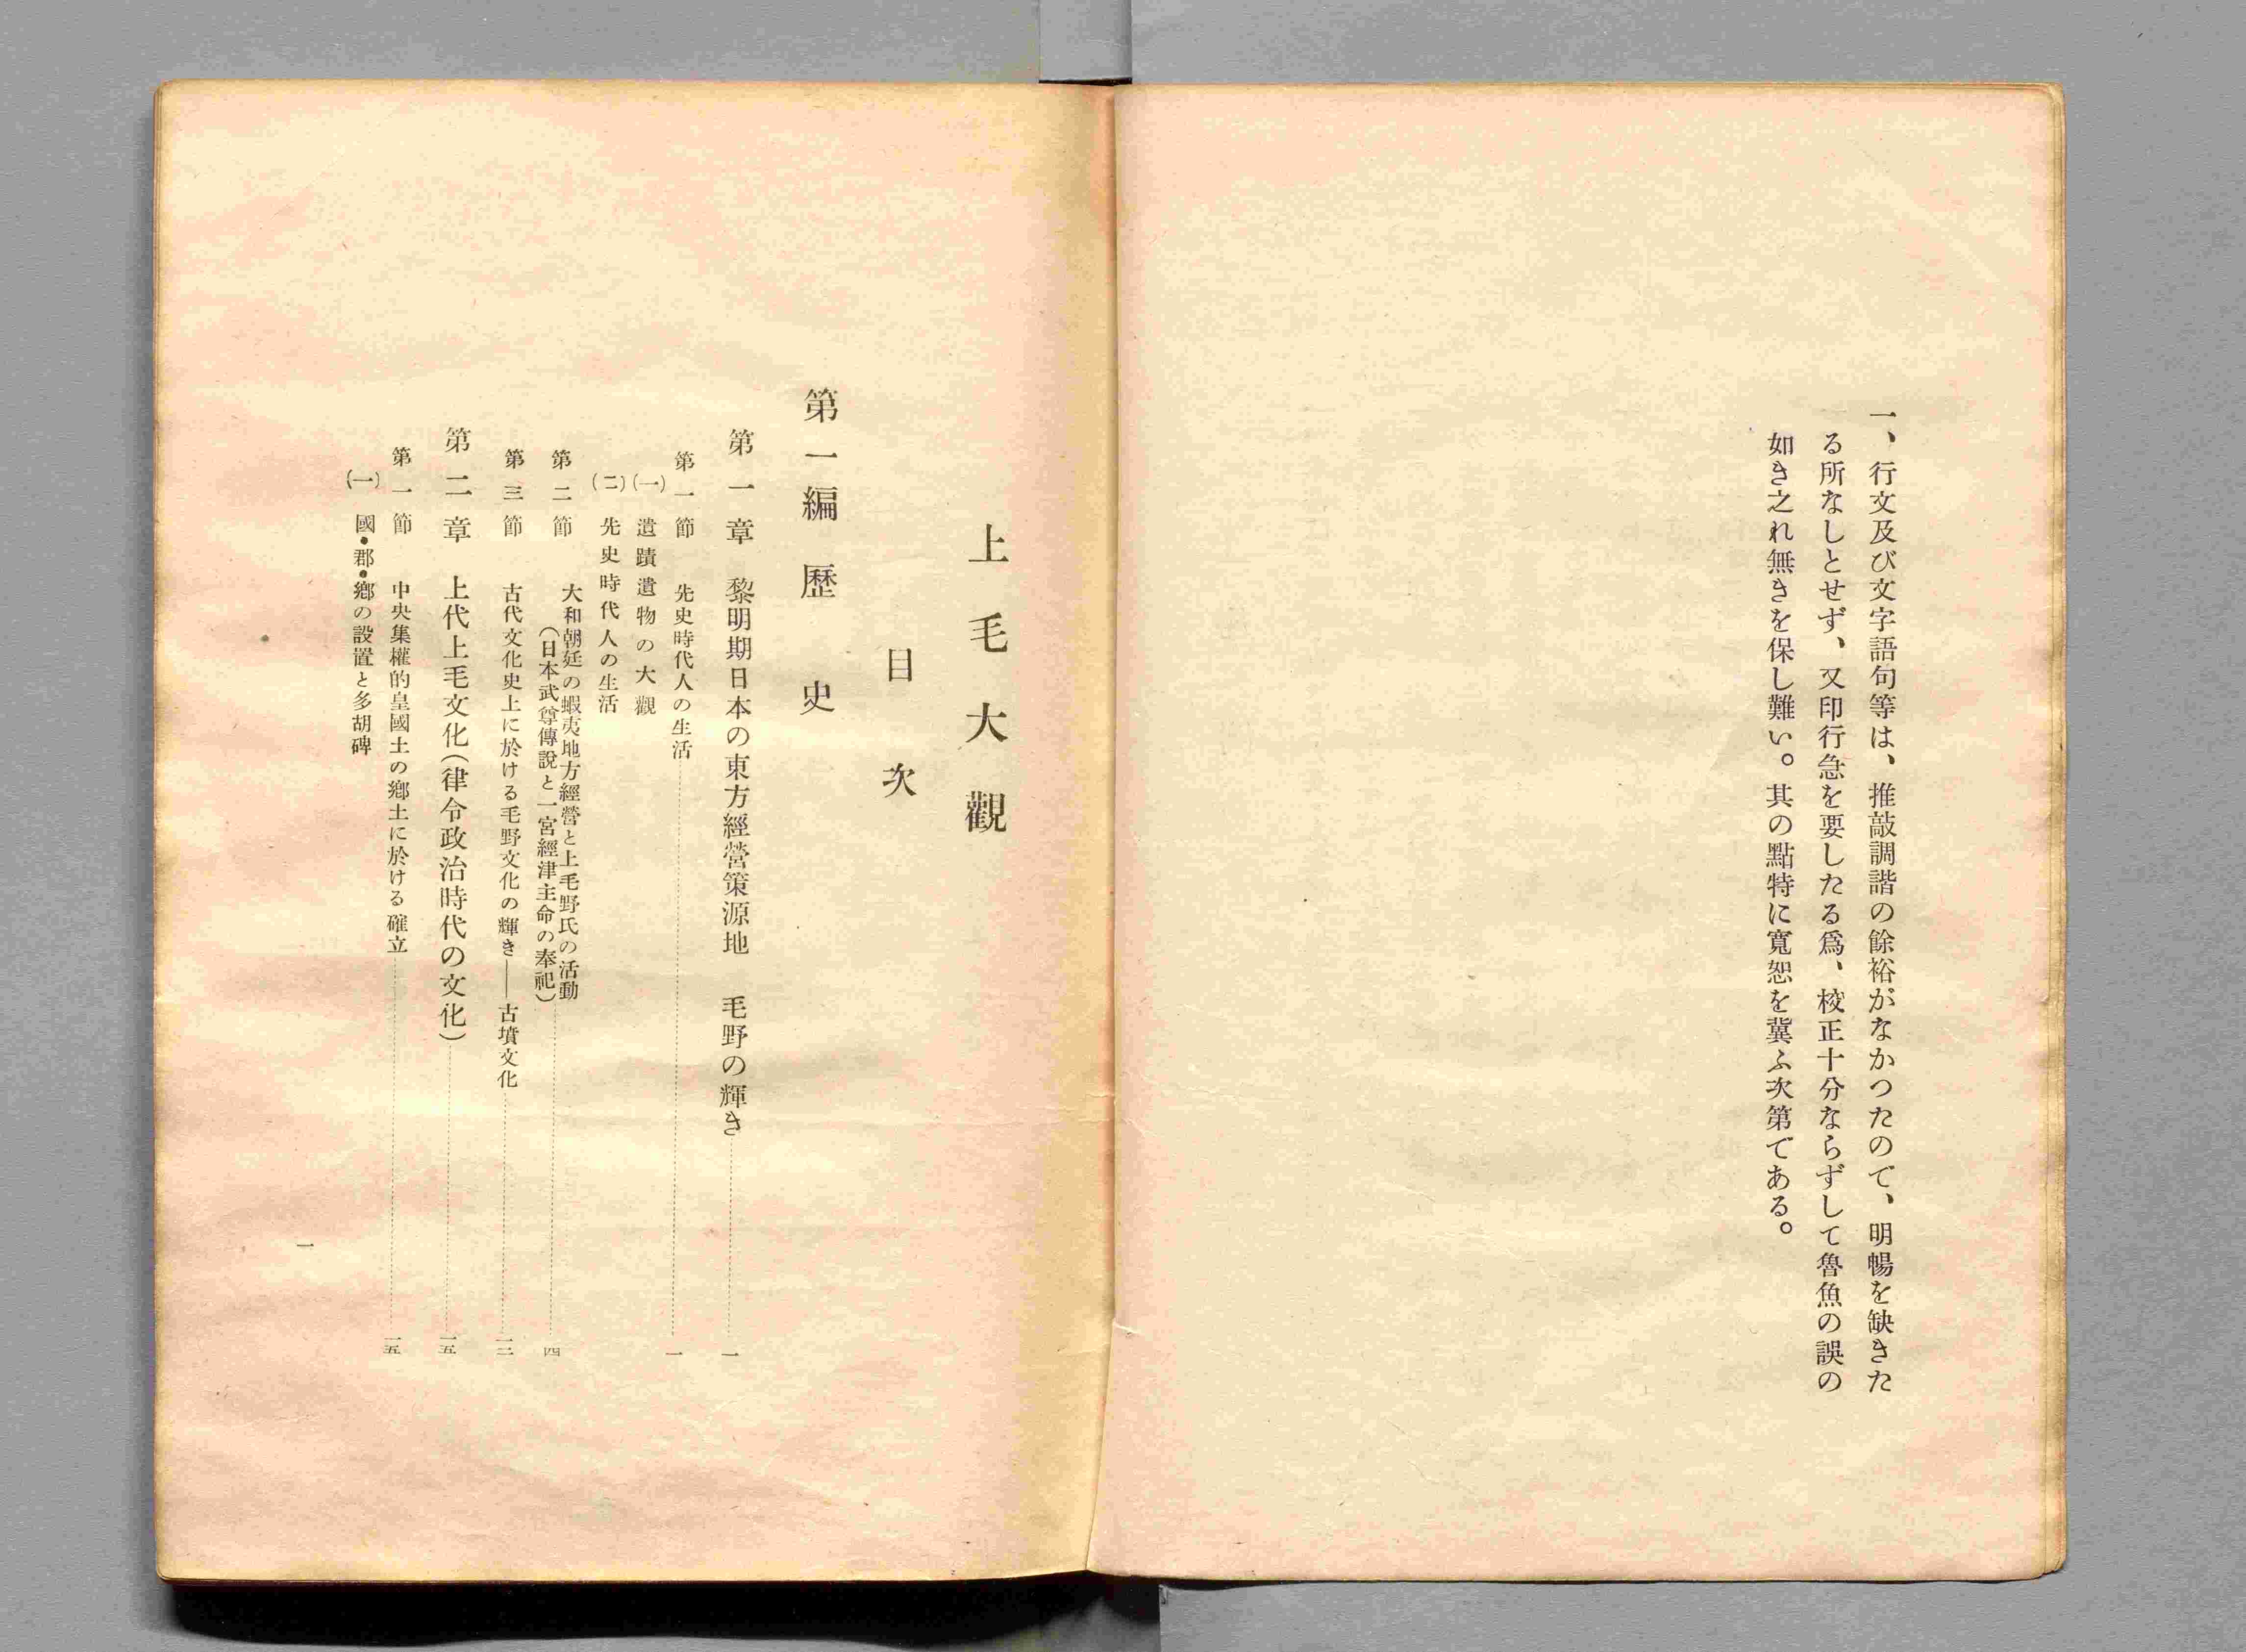 一、行文及び文字語句等は、推敲調諧の餘裕がなかつたので、明暢を缺きた
る所なしとせず、又印行急を要したる爲、校正十分ならずして魯魚の誤の
如き之れ無きを保し難い。其の點特に寬恕を冀ふ次第である。
上毛大觀
目次
第一編 歷史
第一章 黎明期日本の東方經營策源地 毛野の輝き………一
第一節 先史時代人の生活………一
(一) 遺蹟遺物の大觀
(二) 先史時代人の生活
第二節 大和朝廷の蝦夷地方經營と上毛野氏の活動
(日本武尊傳說と一宮經津主命の奉祀)………四
第三節 古代文化史上に於ける毛野文化の輝き——古墳文化………一二
第二章 上代上毛文化(律令政治時代の文化)………一五
第一節 中央集權的皇國土の鄕土に於ける確立………一五
(一) 國・郡・鄕の設置と多胡碑
一